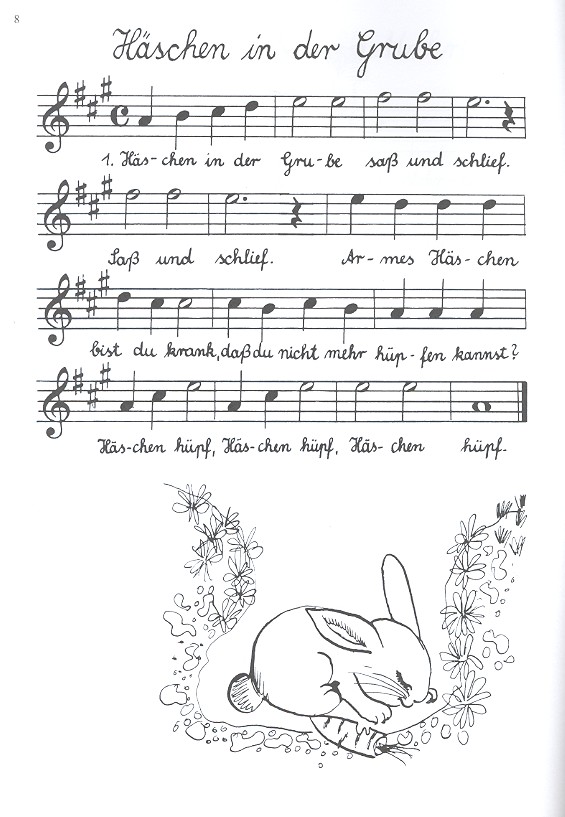 8
Häschen in der Grube
1. Häs-chen in der Gru-be saß und schlief.
Saß und schlief. Ar-mes Häs-chen
bist du krank, daß du nicht mehr hüp-fen kannst?
Häs-chen hüpf, Häs-chen hüpf, Häs-chen hüpf.